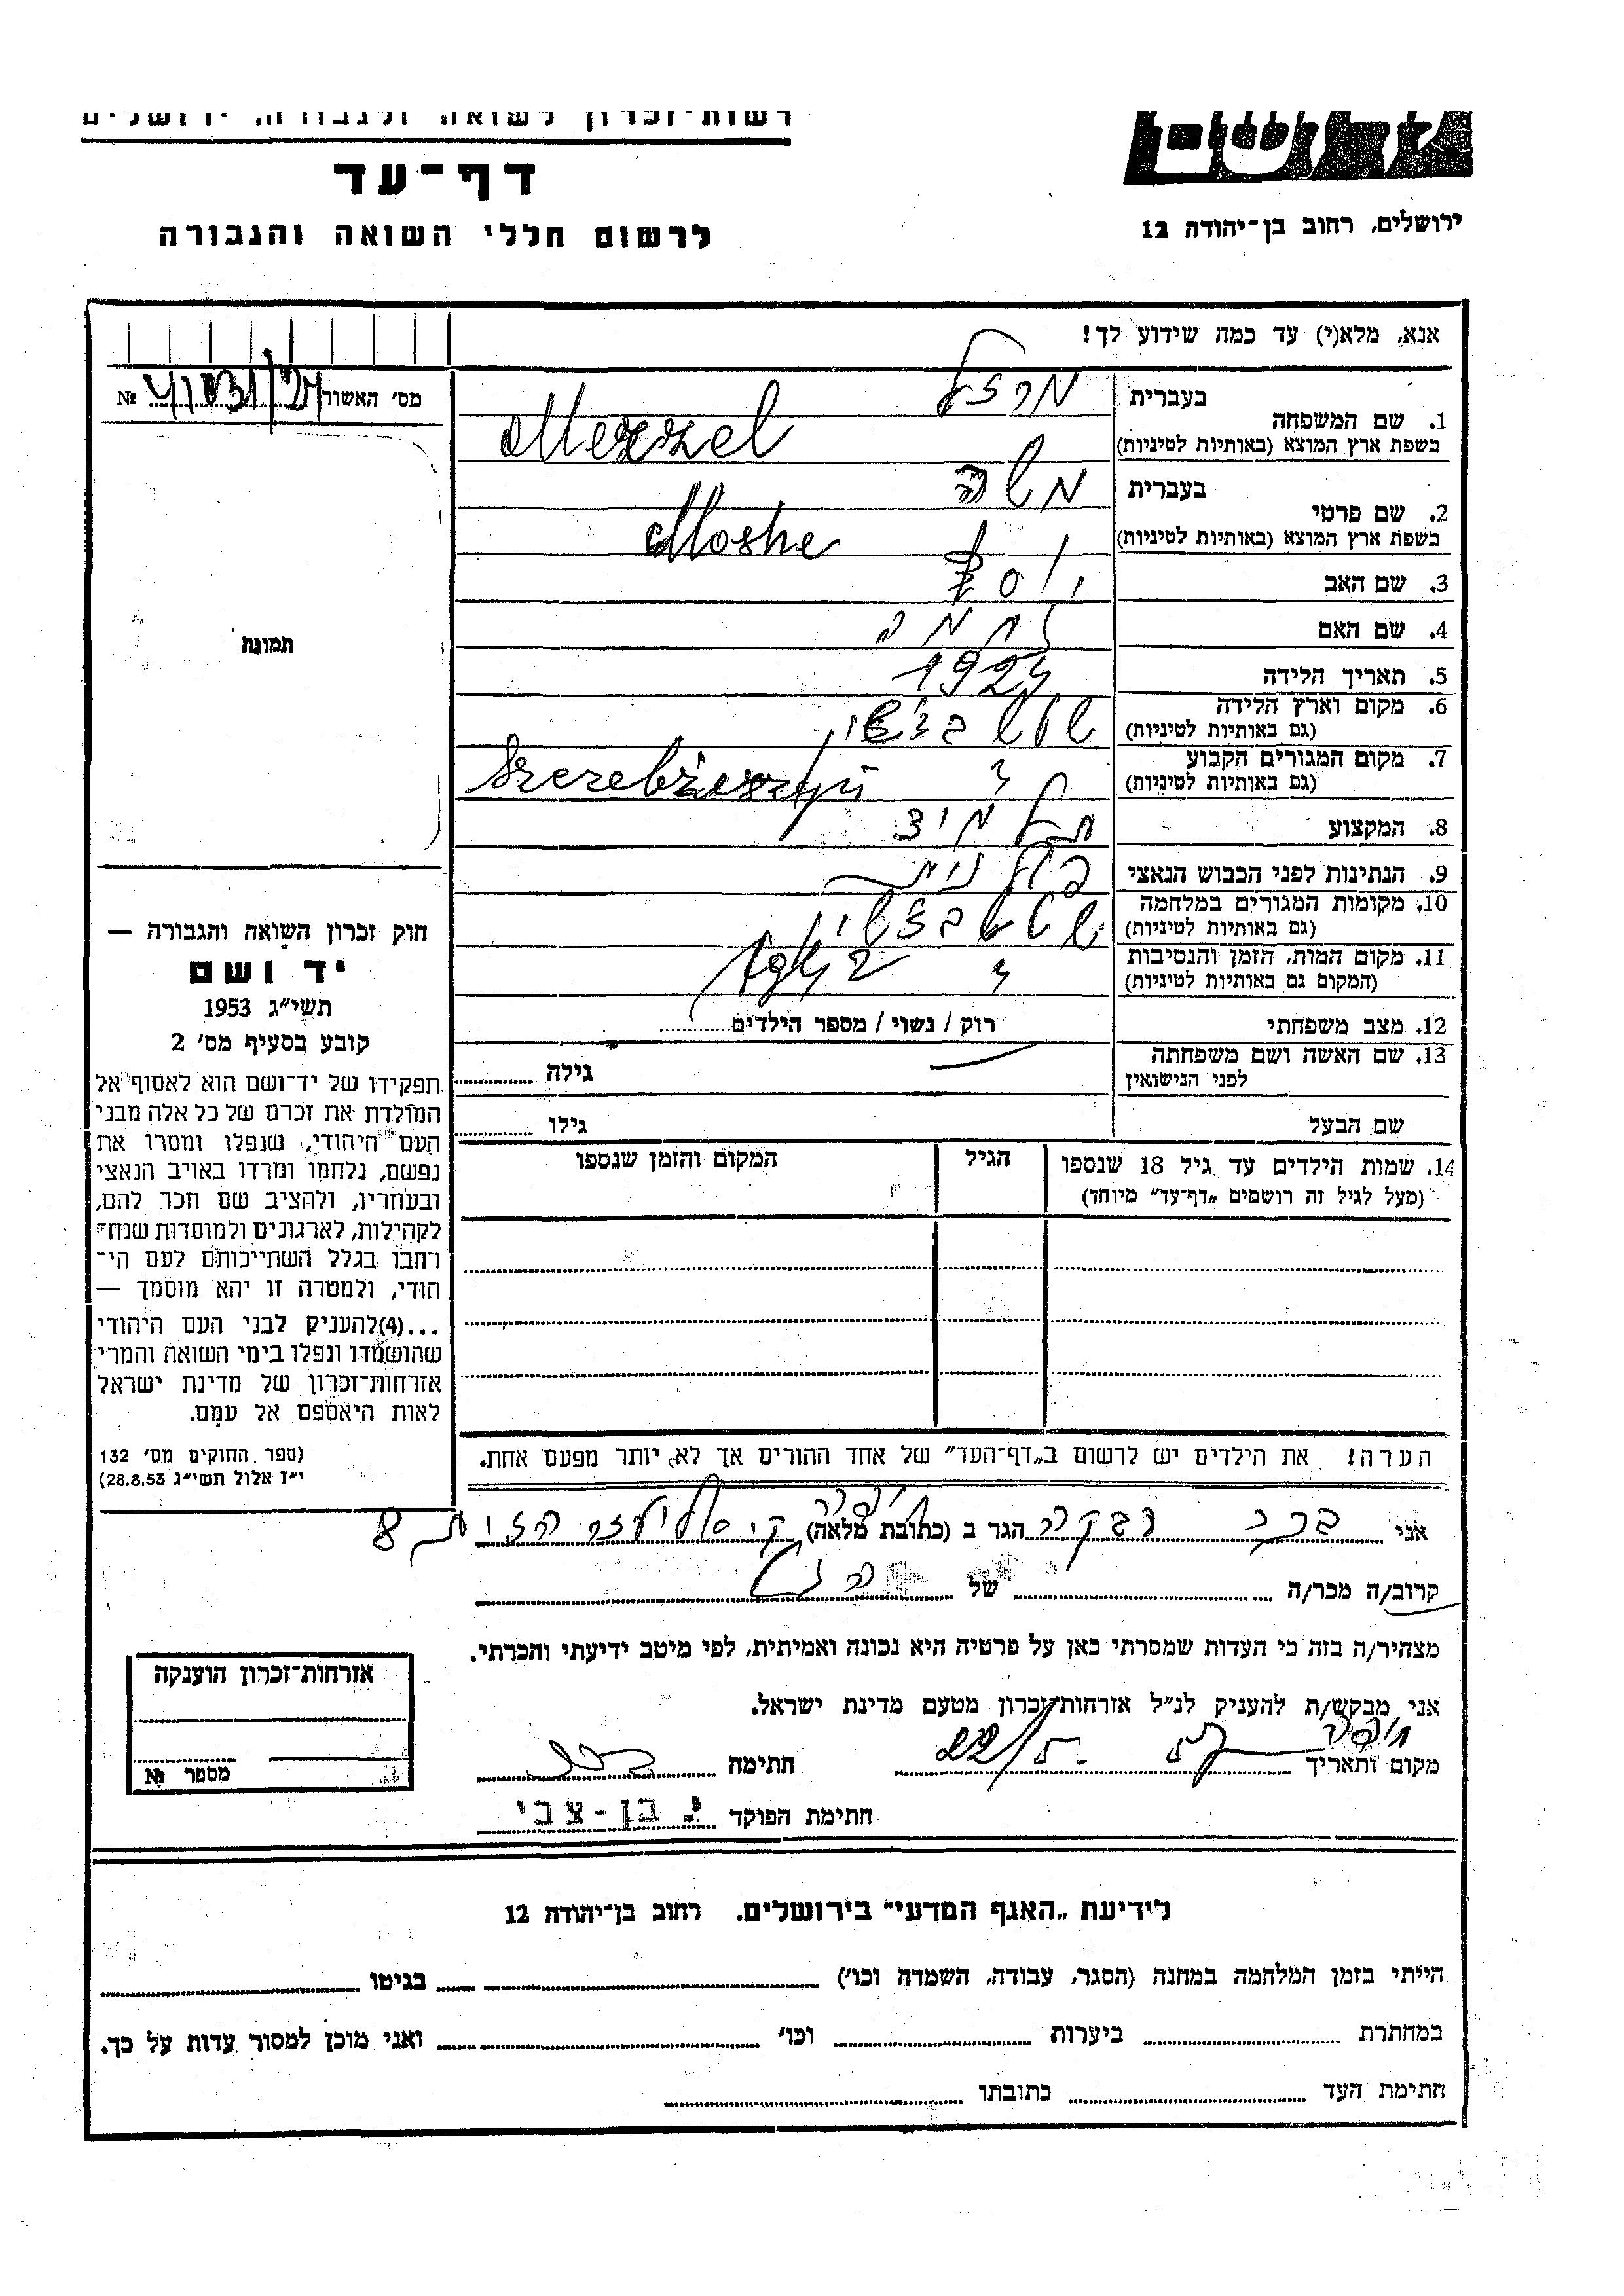 רשות-זכרון לשואה ולגבורה, ירושלים
דף-עד
לרשום חללי השואה והגבורה
ירושלים, רחוב בן-יהודה 12
אנא, מלא(י) עד כמה שידוע לך!
מס׳ האשור №
1. שם המשפחה בעברית מרצל
בשפת ארץ המוצא (באותיות לטיניות) Merzel
2. שם פרטי בעברית משה
בשפת ארץ המוצא (באותיות לטיניות) Moshe
3. שם האב יוסף
4. שם האם נחמה
5. תאריך הלידה 1924
6. מקום וארץ הלידה
(גם באותיות לטיניות)
7. מקום המגורים הקבוע
(גם באותיות לטיניות) Szczebżeszyn
8. המקצוע תלמיד
9. הנתינות לפני הכבוש הנאצי פולנית
10. מקומות המגורים במלחמה
(גם באותיות לטיניות)
11. מקום המות, הזמן והנסיבות
(המקום גם באותיות לטיניות)
12. מצב משפחתי רוק / נשוי / מספר הילדים
13. שם האשה ושם משפחתה
לפני הנישואין גילה
שם הבעל גילו
14. שמות הילדים עד גיל 18 שנספו הגיל המקום והזמן שנספו
(מעל לגיל זה רושמים „דף-עד" מיוחד)
הערה! את הילדים יש לרשום ב„דף-העד" של אחד ההורים אך לא יותר מפעם אחת.
תמונת
חוק זכרון השואה והגבורה —
יד ושם
תשי״ג 1953
קובע בסעיף מס׳ 2
תפקידו של יד-ושם הוא לאסוף אל
המולדת את זכרם של כל אלה מבני
העם היהודי, שנפלו ומסרו את
נפשם, נלחמו ומרדו באויב הנאצי
ובעוזריו, ולהציב שם וזכר להם,
לקהילות, לארגונים ולמוסדות שנח-
רחבו בגלל השתייכותם לעם הי-
הודי, ולמטרה זו יהא מוסמך —
...(4)להעניק לבני העם היהודי
שהושמדו ונפלו בימי השואה והמרי
אזרחות-זכרון של מדינת ישראל
לאות היאספם אל עמם.
(ספר החוקים מס׳ 132
י״ז אלול תשי״ג 28.8.53)
אני ברג רבקה הגר ב (כתובת מלאה) חיפה
קרוב/ה מכר/ה של
מצהיר/ה בזה כי העדות שמסרתי כאן על פרטיה היא נכונה ואמיתית, לפי מיטב ידיעתי והכרתי.
אני מבקש/ת להעניק לנ״ל אזרחות-זכרון מטעם מדינת ישראל.
מקום ותאריך חיפה חתימה
חתימת הפוקד י. בן-צבי
אזרחות-זכרון הוענקה
מספר №
לידיעת „האגף המדעי" בירושלים. רחוב בן-יהודה 12
הייתי בזמן המלחמה במחנה (הסגר, עבודה, השמדה וכו׳) בגיטו
במחתרת ביערות וכו׳ ואני מוכן למסור עדות על כך.
חתימת העד כתובתו